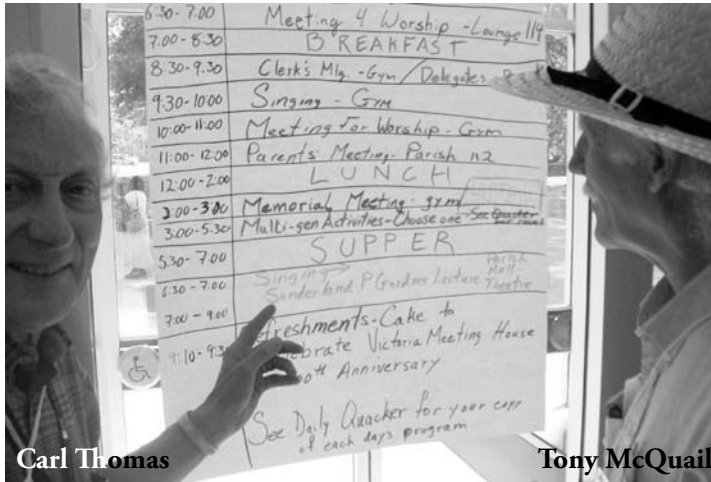 6:30-7:00 Meeting 4 Worship - Lounge 114
7:00-8:30 BREAKFAST
8:30-9:30 Clerk's Mtg. - Gym / Delegates
9:30-10:00 Singing - Gym
10:00-11:00 Meeting for Worship - Gym
11:00-12:00 Parents Meeting - Parish 112
12:00-2:00 LUNCH
2:00-3:00 Memorial Meeting - gym
3:00-5:30 Multi-gen Activities - Choose one - See Quacker
5:30-7:00 SUPPER
6:30-7:00 Singing
Sunderland P Gardner Lecture Parish Hall - Theatre
7:00-9:00
9:10-9:30 freshments - Cake to
lebrate Victoria Meeting House
00th Anniversary
See Daily Quacker for your copy
of each days program
Carl Thomas
Tony McQuail